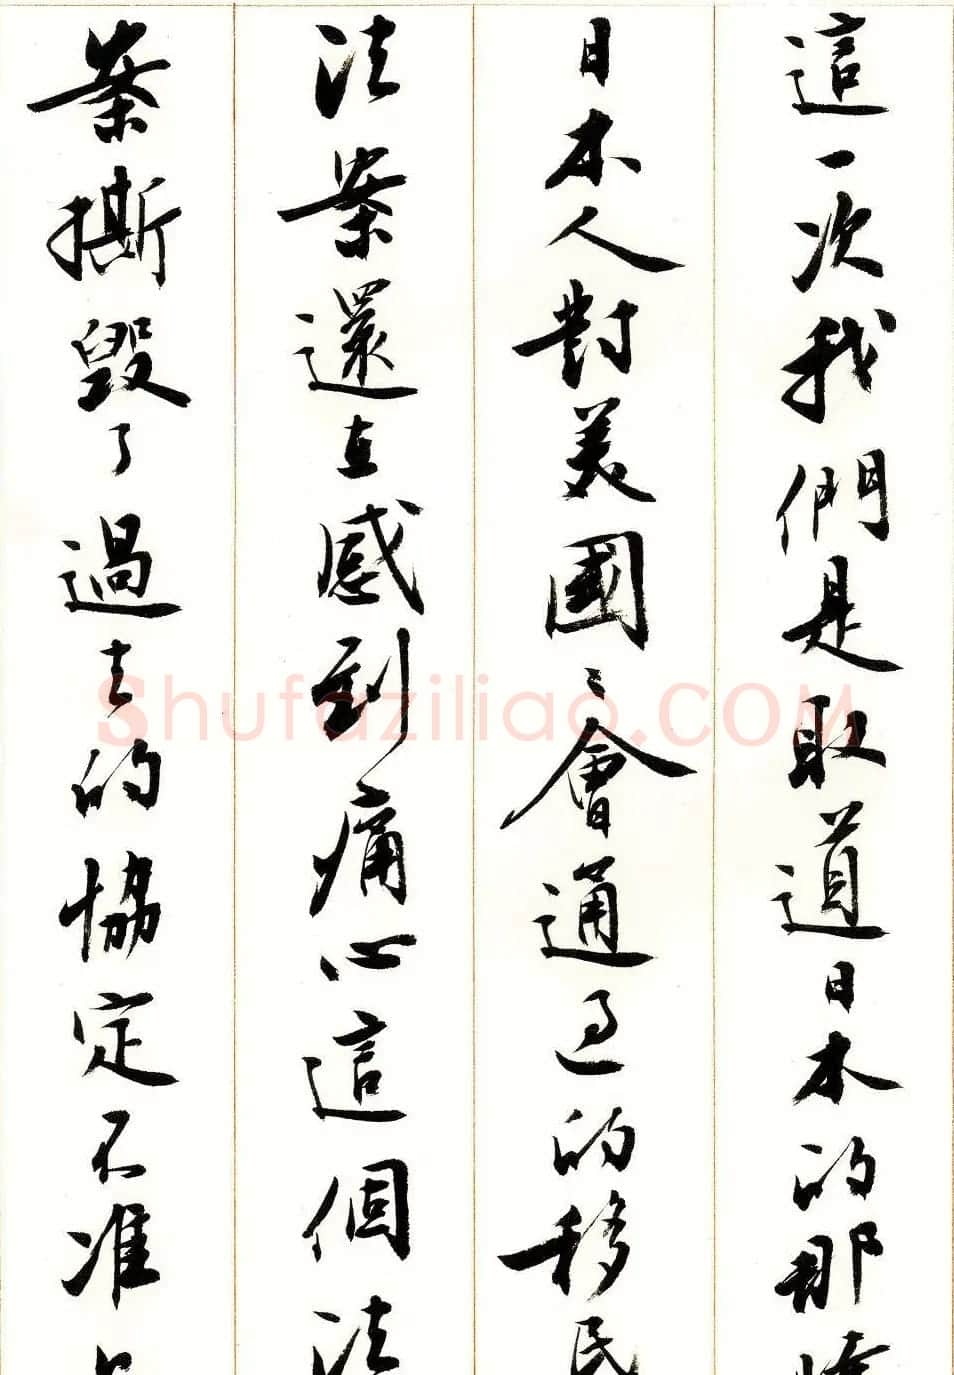 這一次我們是取道日本的那時
日本人對美國〻會通过的移民
法案還在感到痛心這個法
案撕毀了過去的協定不准
Shufaziliao.COM